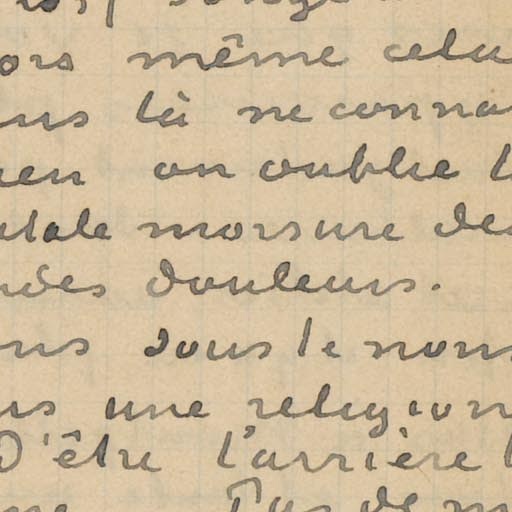 ors même celu
ns là ne conna
en on oublie l
tale morsure de
des douleurs.
ns sous le nom
us une religion
D'être l'arrière
Pus de m